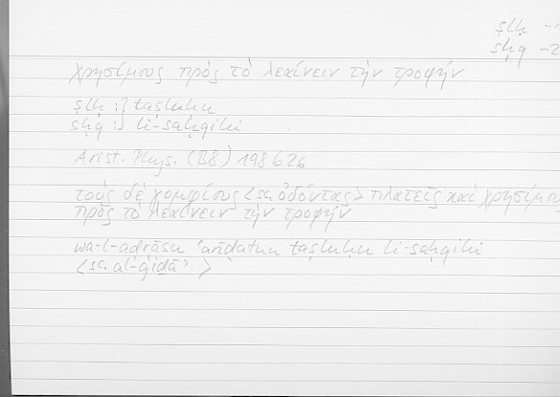 ṣlḥ -1
sḥq -2
χρησίμους πρὸς τὸ λεαίνειν τὴν τροφήν
ṣlḥ :} taṣluḥu
sḥq :} li-saḥqihi
Arist. Phys. (B8) 198b26
τοὺς δὲ γομφίους <sc. ὀδόντας> πλατεῖς καὶ χρησίμου
πρὸς τὸ λεαίνειν τὴν τροφήν
wa-l-aḍrāsu ʿarīḍatun taṣluḥu li-saḥqihi
<sc. al-ġiḏāʾ>